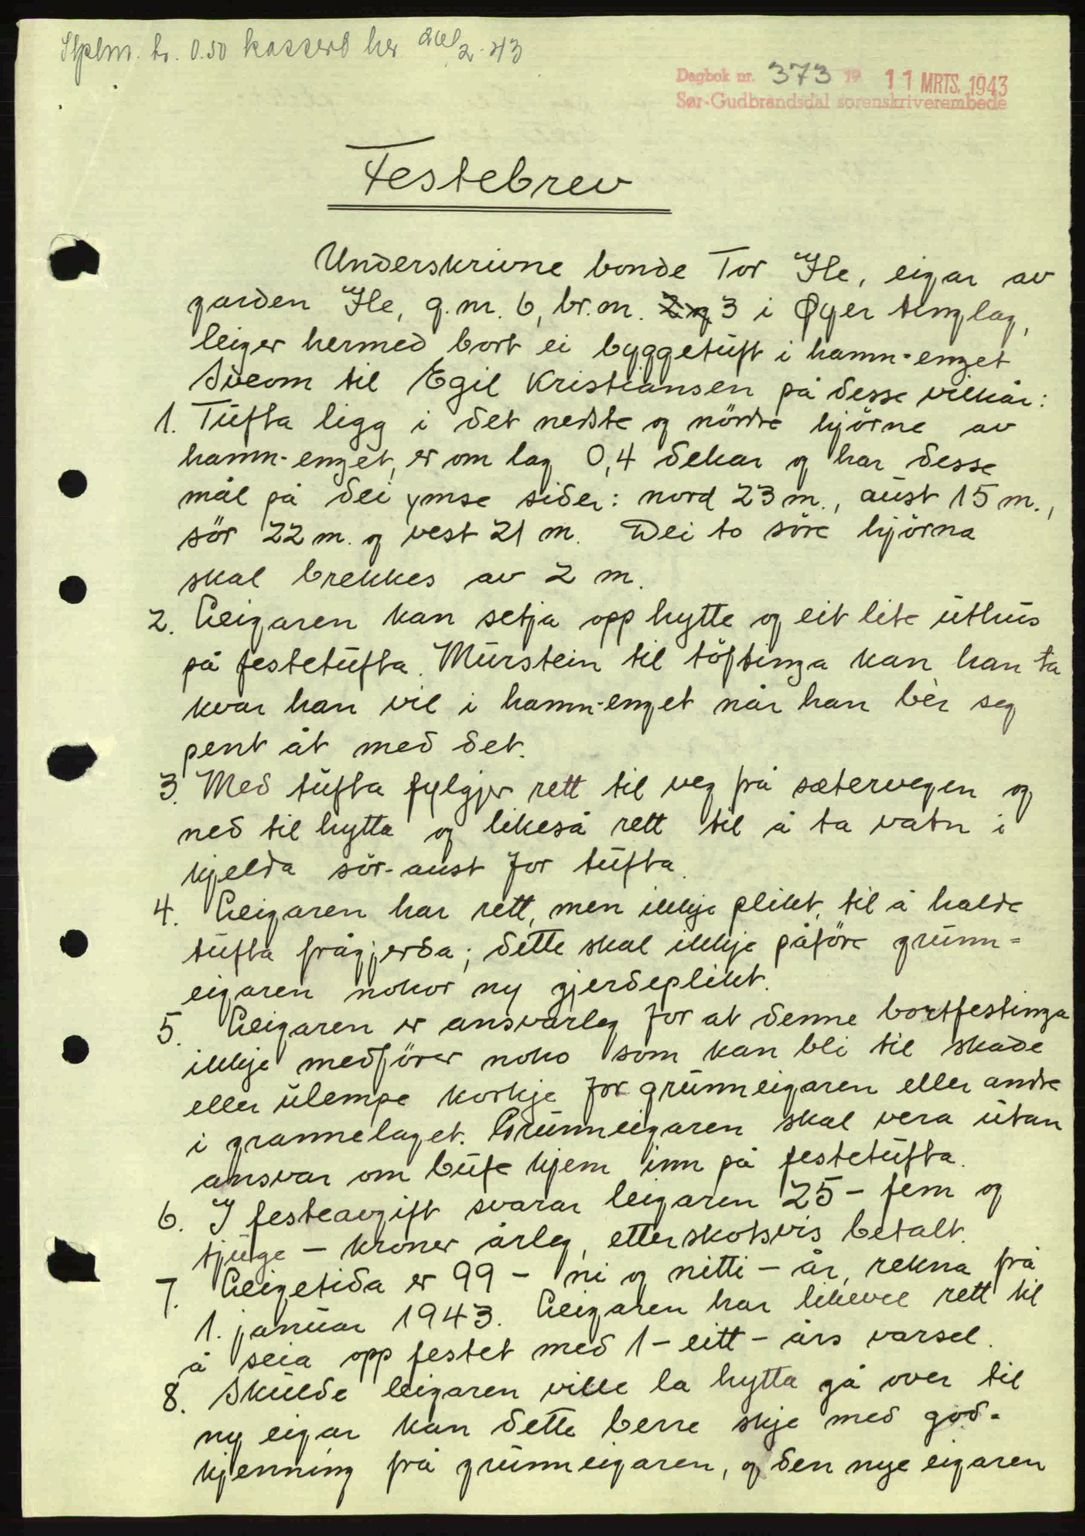 Stplm. kr. 0.50 kassert her 26/2-43
Dagbok nr. 373 19 11 MRTS. 1943
Sør-Gudbrandsdal sorenskriverembede
Festebrev
Underskrivne bonde Tor Ile, eigar av
garden Ile, g.nr. 6, br.nr. 3 i Øyer tinglag,
leiger hermed bort ei byggetuft i hamn-enget
til Egil Kristiansen på desse vilkår:
1. Tufta ligg i det nedste og nördre hjörne av
hamn-enget, er om lag 0,4 dekar og har desse
mål på dei ymse sider: nord 23 m., aust 15 m.,
sör 22 m. og vest 21 m. Dei to söre hjörna
skal brekkes av 2 m.
2. Leigaren kan setja opp hytte og eit lite uthus
på festetufta. Murstein til töftinga kan han ta
kvar han vil i hamn-enget når han bèr seg
pent åt med det.
3. Med tufta fylgjer rett til veg frå sætervegen og
ned til hytta og likeså rett til å ta vatn i
kjelda sör-aust for tufta.
4. Leigaren har rett, men ikkje plikt, til å halde
tufta frågjerda; dette skal ikkje påföre grunn-
eigaren nokor ny gjerdeplikt.
5. Leigaren er ansvarleg for at denne bortfestinga
ikkje medförer noko som kan bli til skade
eller ulempe korkje for grunneigaren eller andre
i grannelaget. Grunneigaren skal vera utan
ansvar om bufe kjem inn på festetufta.
6. I festeavgift svarar leigaren 25 - fem og
tjuge - kroner årleg, etterskotsvis betalt.
7. Leigetida er 99 - ni og nitti - år, rekna frå
1. januar 1943. Leigaren har likevel rett til
å seia opp festet med 1 - eitt - års varsel.
8. Skulde leigaren ville la hytta gå over til
ny eigar kan dette berre skje med god-
kjenning frå grunneigaren, og den nye eigaren